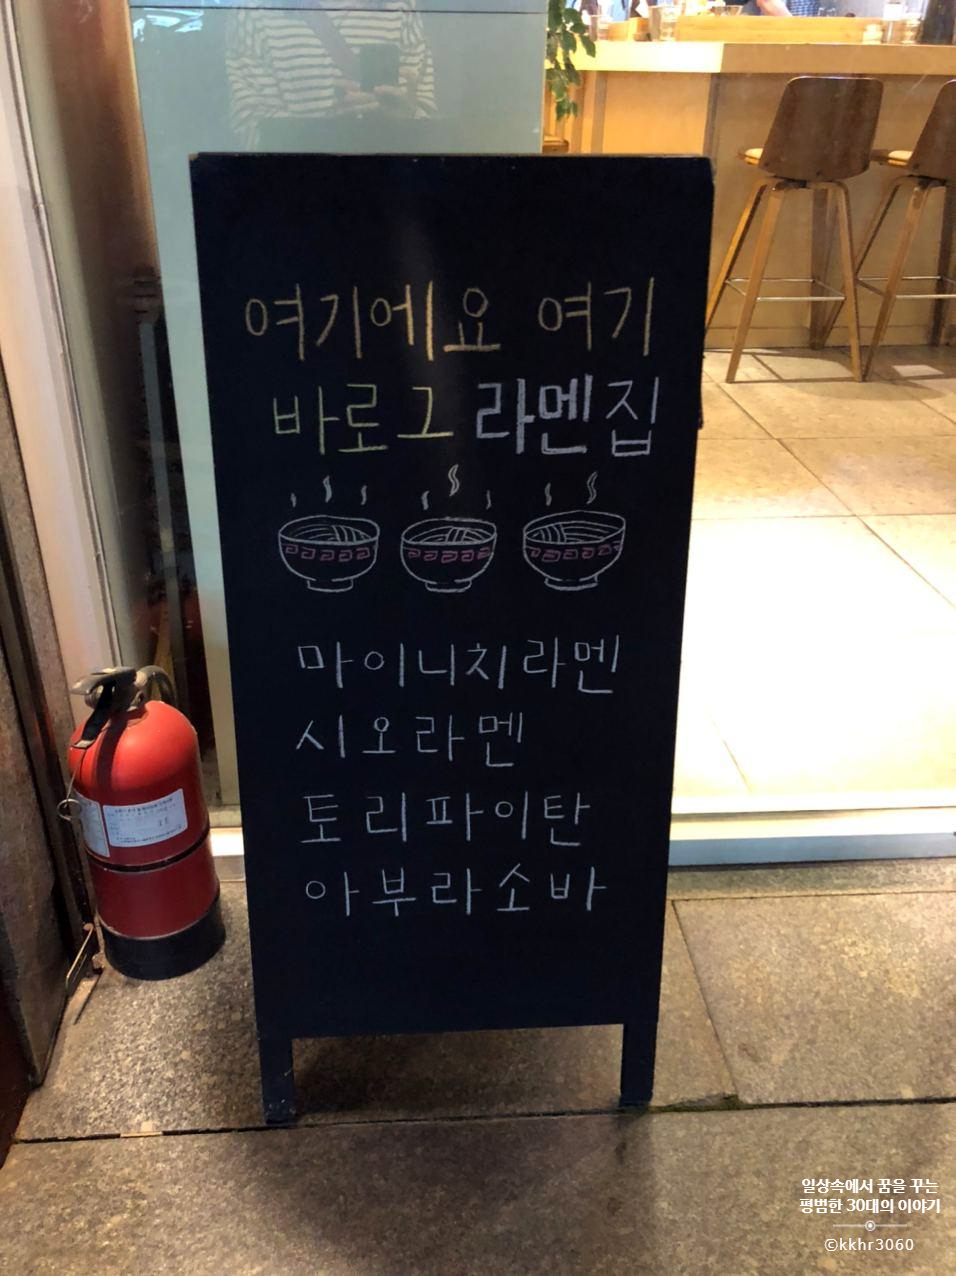 여기에요 여기
바로그 라멘집
마이니치라멘
시오라멘
토리파이탄
아부라소바
일상속에서 꿈을 꾸는
평범한 30대의 이야기
©kkhr3060